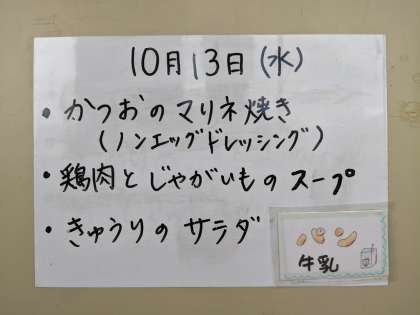 10月13日(水)
・かつおのマリネ焼き
(ノンエッグドレッシング)
・鶏肉とじゃがいものスープ
・きゅうりのサラダ
パン
牛乳